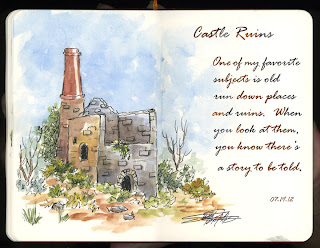 Castle Ruins
One of my favorite
subjects is old
run down places
and ruins. When
you look at them,
you know there's
a story to be told.
07.19.12